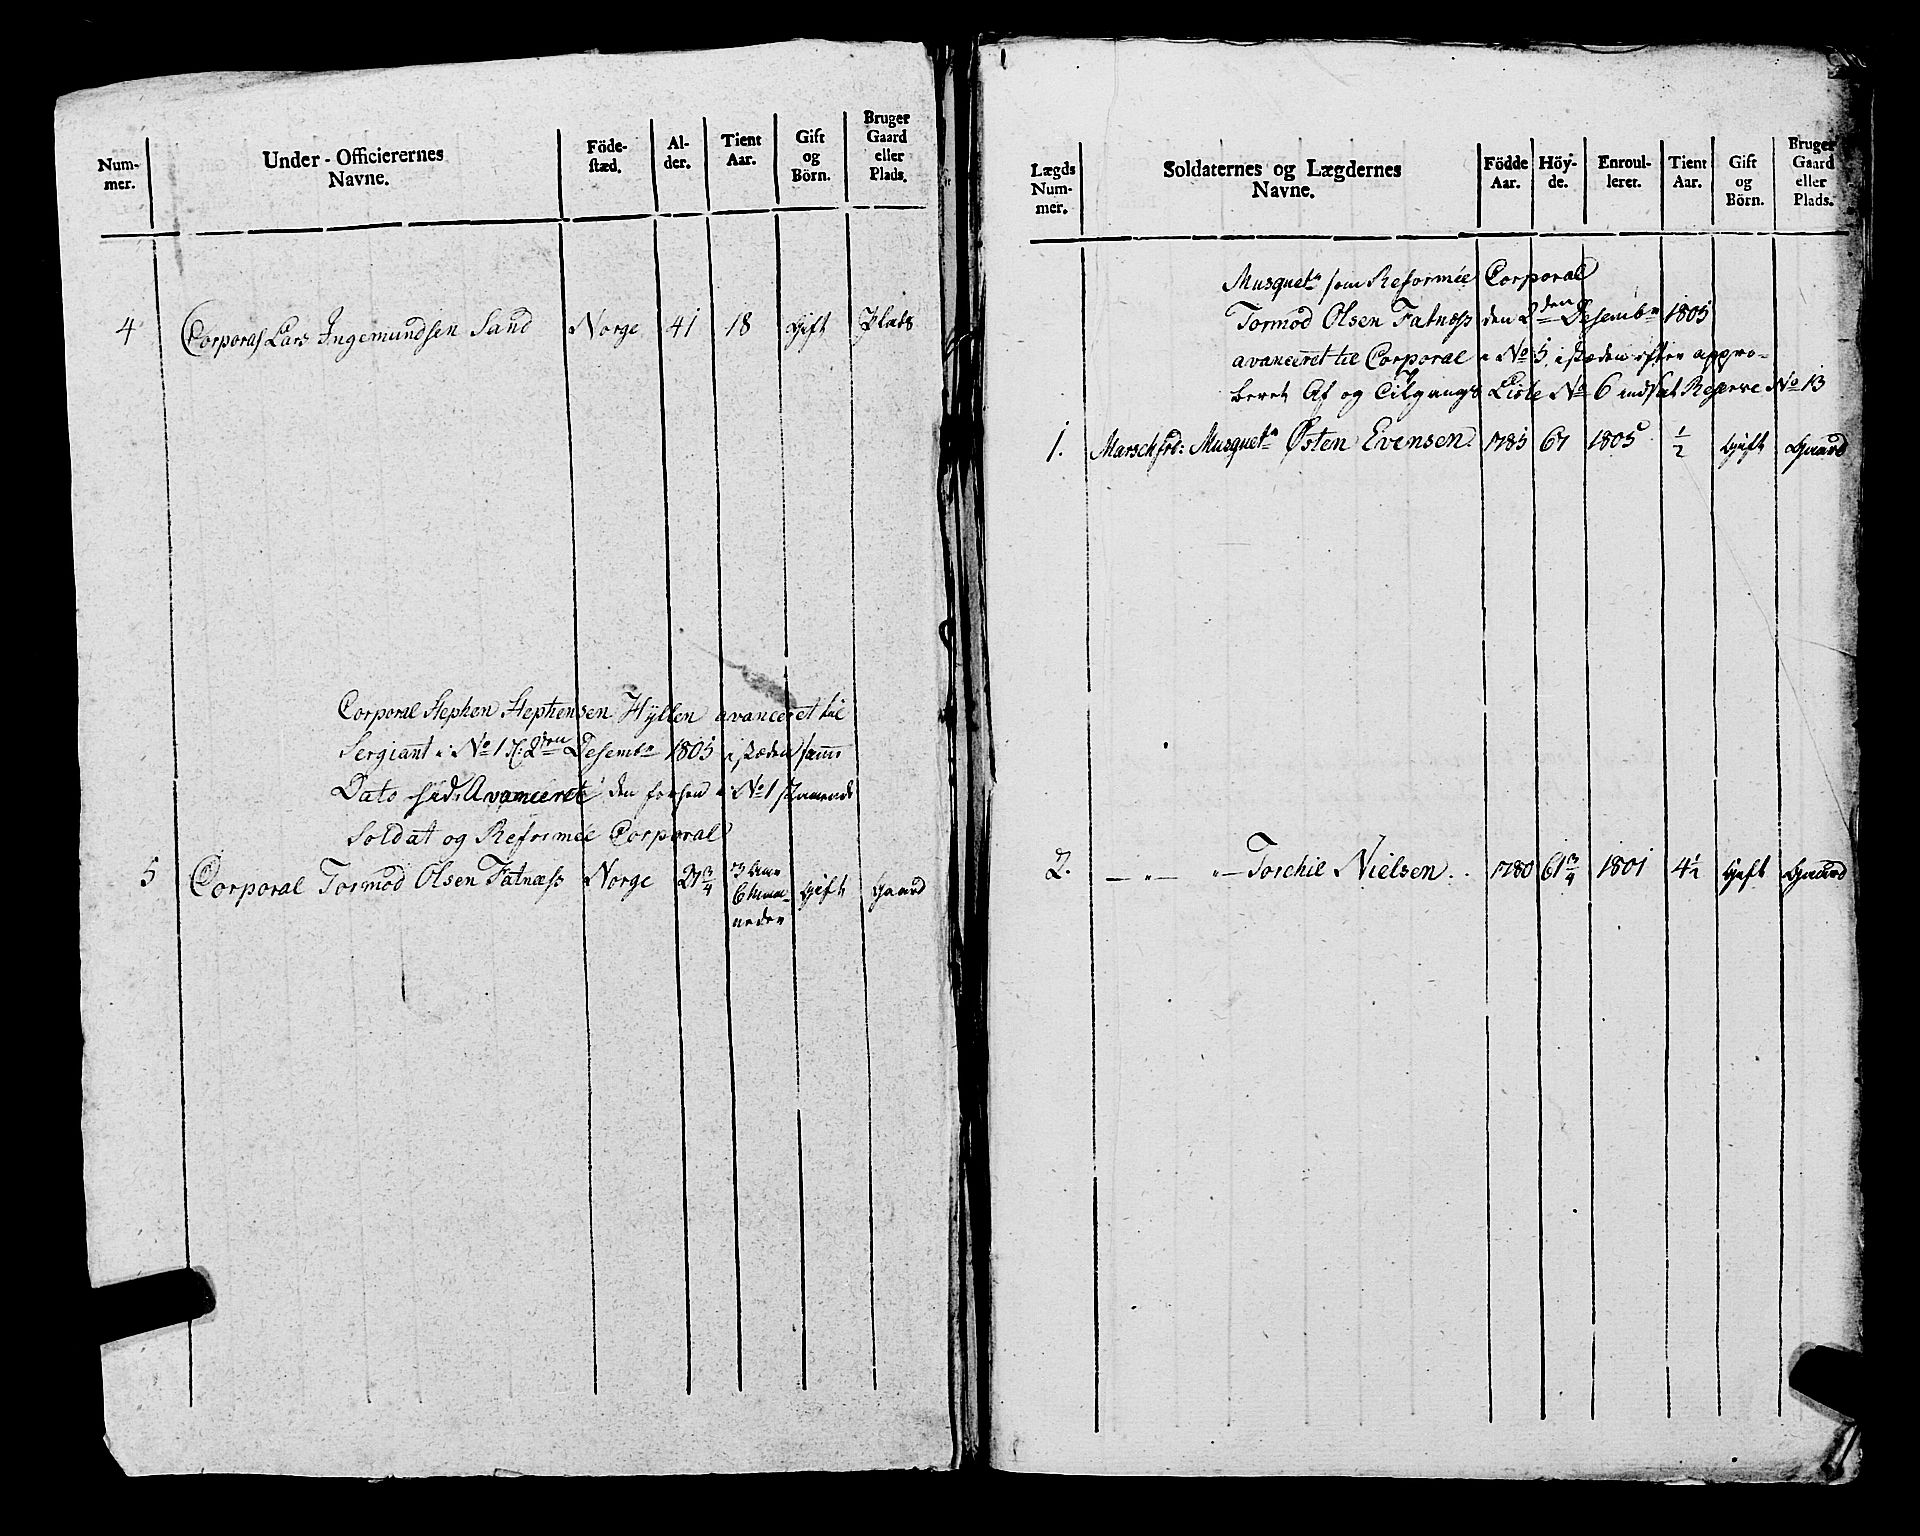 Num-
mer.
Under-Officierernes
Navne.
Föde-
stæd.
Al-
der.
Tient
Aar.
Gift
og
Börn.
Bruger
Gaard
eller
Plads.
4 Corporal Lars Ingemundsen Sand Norge 41 18 Gift Plads
Corporal Stephen Stephensen Hyllen avanceret til
Sergiant i No 1 d: 2den Desembr 1805 i stæden samme
Dato Avanceret den forhen i No 1 staaende
Soldat og Reformée Corporal
5 Corporal Tormod Olsen Fatnæss Norge 21 3/4 3 Aar 6 Maa- neder Gift Gaard
Lægds
Num-
mer.
Soldaternes og Lægdernes
Navne.
Födde
Aar.
Höy-
de.
Enroul-
leret.
Tient
Aar.
Gift
og
Börn.
Bruger
Gaard
eller
Plads.
Musquetr som Reformée Corporal
Tormod Olsen Fatnæss den 2den Desembr 1805
avanceret til Corporal i No 5, i stæden efter appro-
beret Af og Tilgangs Liste No 6 indsat Reserve No 13
1. Marschfrd: Musquetr Østen Evensen 1785 67 1805 1/2 Gift Gaard
2. — " — " — Torchil Nielsen . . 1780 61 3/4 1801 4 1/2 Gift Gaard